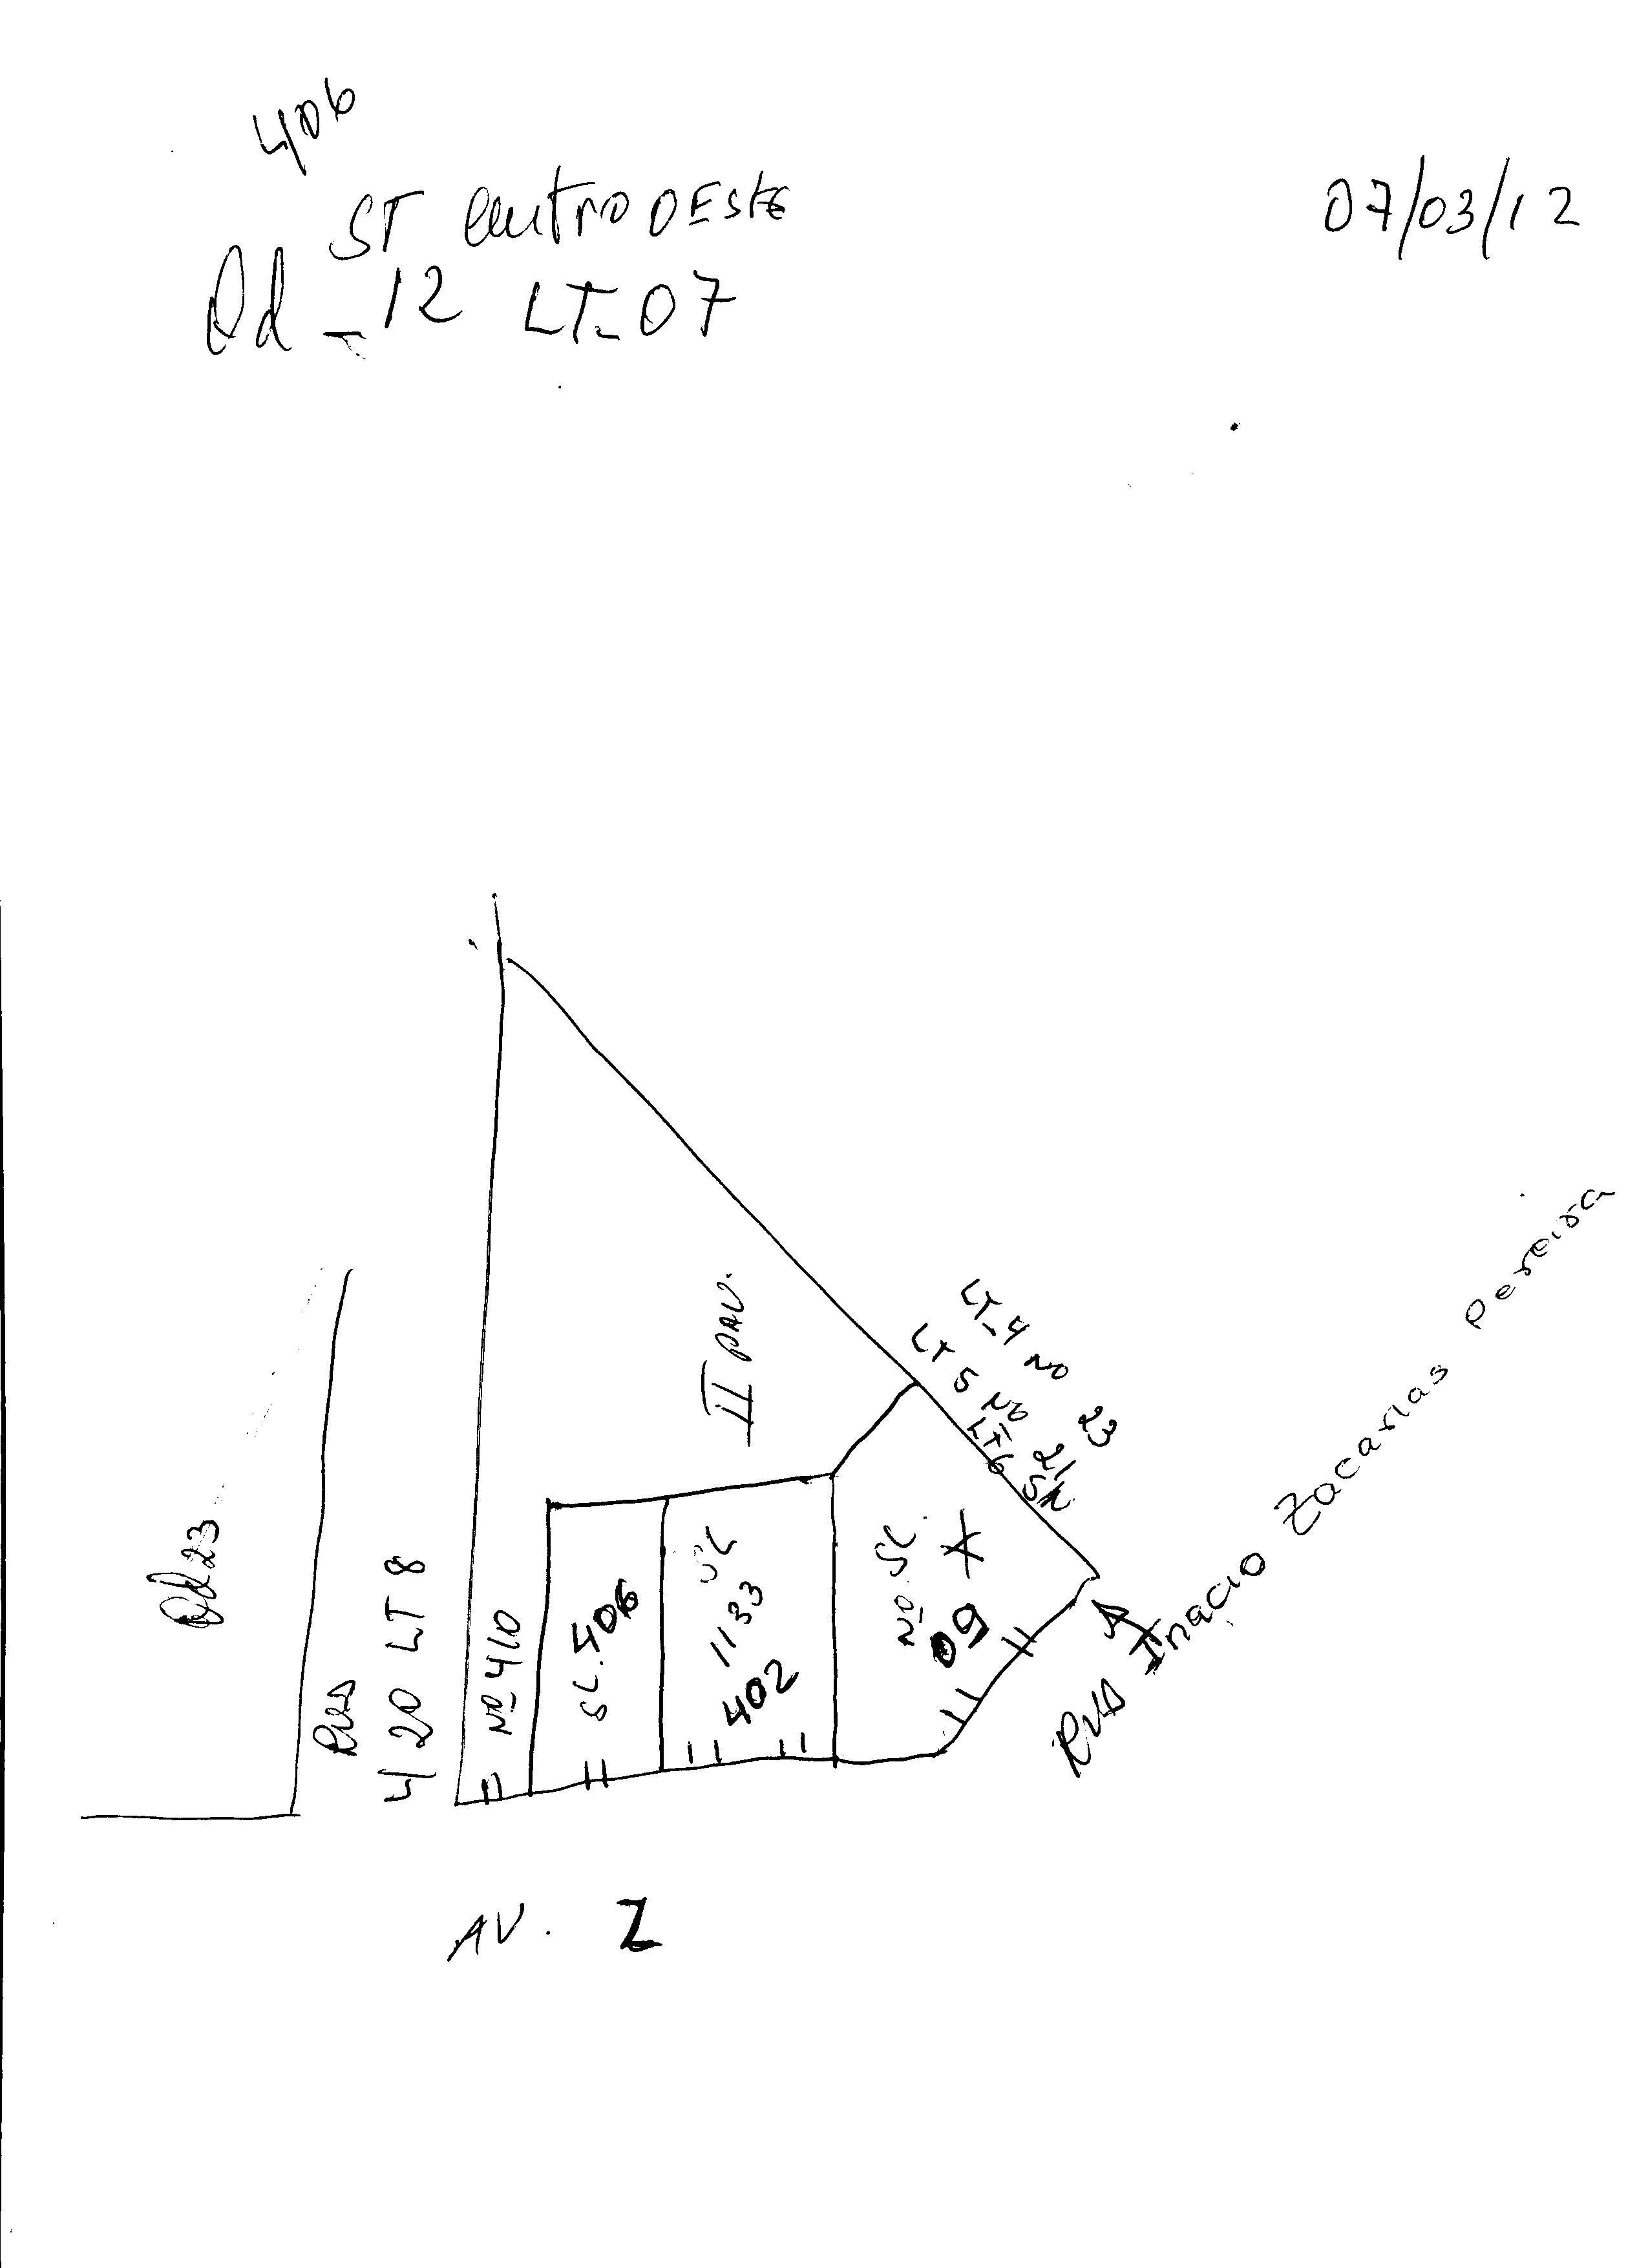 406
ST Centro OESTE
07/03/12
Qd - 12 LT - 07
II PAV.
LT - 4 Nº 23
LT 5 Nº 21
LT 6 SN
Qd 23
Rua
20 LT 8
Nº 410
SL. 406
SL
1133
402
Nº SL
09
X
Rua Inacio Zacarias Pereira
AV. Z